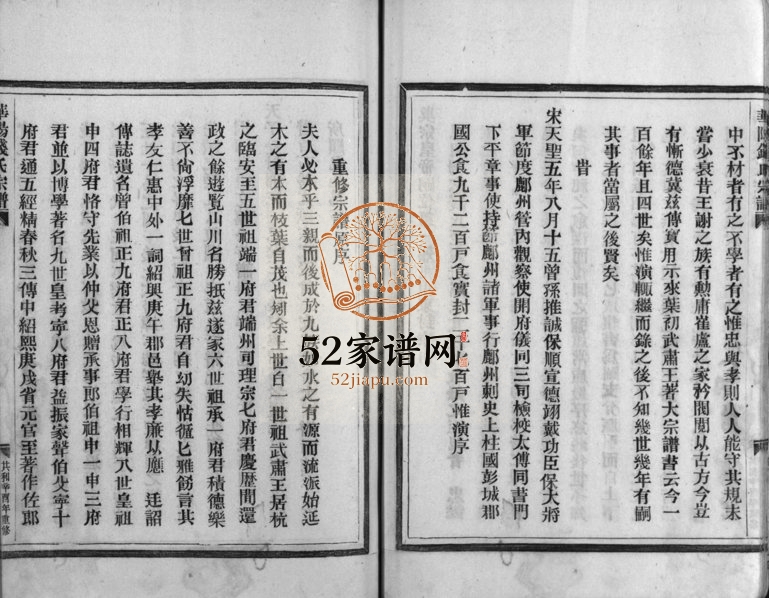 中不材者有之不學者有之惟忠與孝則人人能守其規未
嘗少衰昔王謝之族有勲庸崔盧之家矜閥閱以古方今豈
有慚德冀兹傳寶用示來葉初武肅王著大宗譜書云今一
百餘年且四世矣惟演輒繼而錄之後不知幾世幾年有嗣
其事者當屬之後賢矣
旹
宋天聖五年八月十五曾孫推誠保順宣德翊戴功臣保大將
軍節度鄜州管內觀察使開府儀同三司檢校太傅同中書門
下平章事使持節鄜州諸軍事行鄜州刺史上柱國彭城郡
國公食九千二百戸食實封 百戸惟演序
重修宗譜原序
夫人必本乎三親而後成於九 水之有源而流派始延
木之有本而枝葉自茂也矧余上世自一世祖武肅王居杭
之臨安王五世祖端一府君端州司理宗七府君慶歴間還
政之餘遊覧山川省勝抵兹遂家六世祖承一府君積德樂
善不尚浮靡七世曾祖正九府君自幼失怙 雅飭言其
孝友仁惠中外一詞紹興庚午郡邑舉其孝亷以應之 廷詔
傳誌遺各曾伯祖正九府君正八府君學行相輝八世皇祖
申四府君恪守先業以仲父恩贈承事郎伯祖申一申三府
君並以博學著名九世皇考寧八府君益振家聲伯父寧十
府君通五經精春秋三傳中紹熙庚戌省元官至著作佐郎
共和辛酉年重修
52家谱网
52jiapu.com